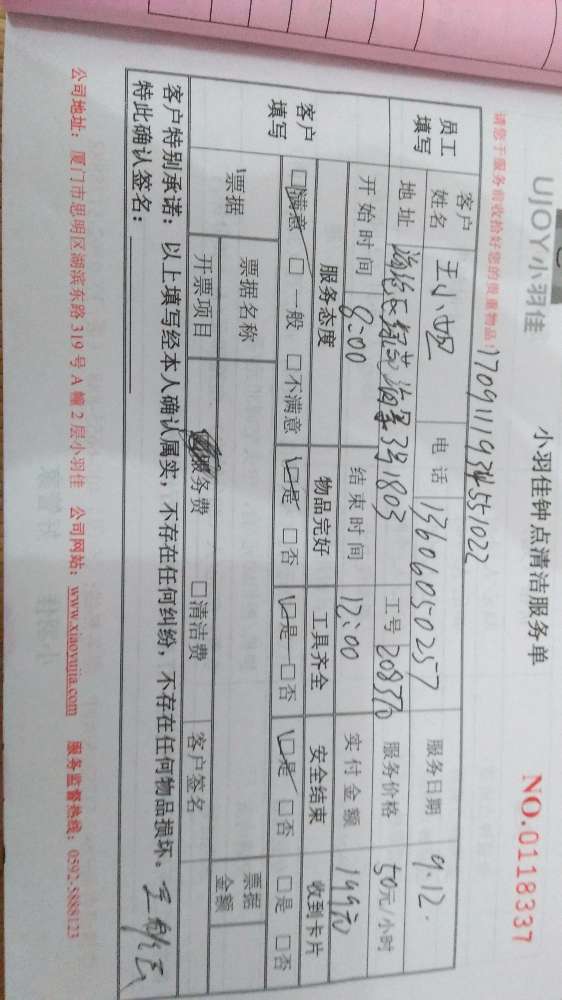 UJOY小羽佳
小羽佳钟点清洁服务单
NO.0118337
请您于服务前收拾好您的贵重物品!
1709111934551022
员工填写
客户姓名 王小姐 电话 13606050257 服务日期 9.12.
地址 3号1803 工号 208576 服务价格 50元/小时
开始时间 8:00 结束时间 12:00 实付金额 199元
客户填写
服务态度 物品完好 工具齐全 安全结束 收到卡片
□满意 □一般 □不满意 □是 □否 □是 □否 □是 □否 □是 □否
票据 票据名称 票据金额
开票项目 服务费 □清洁费 客户签名
客户特别承诺:以上填写经本人确认属实,不存在任何纠纷,不存在任何物品损坏。
特此确认签名:
公司地址:厦门市思明区湖滨东路319号A幢2层小羽佳 公司网站:www.xiaoyujia.com 服务监督热线:0592-5888123